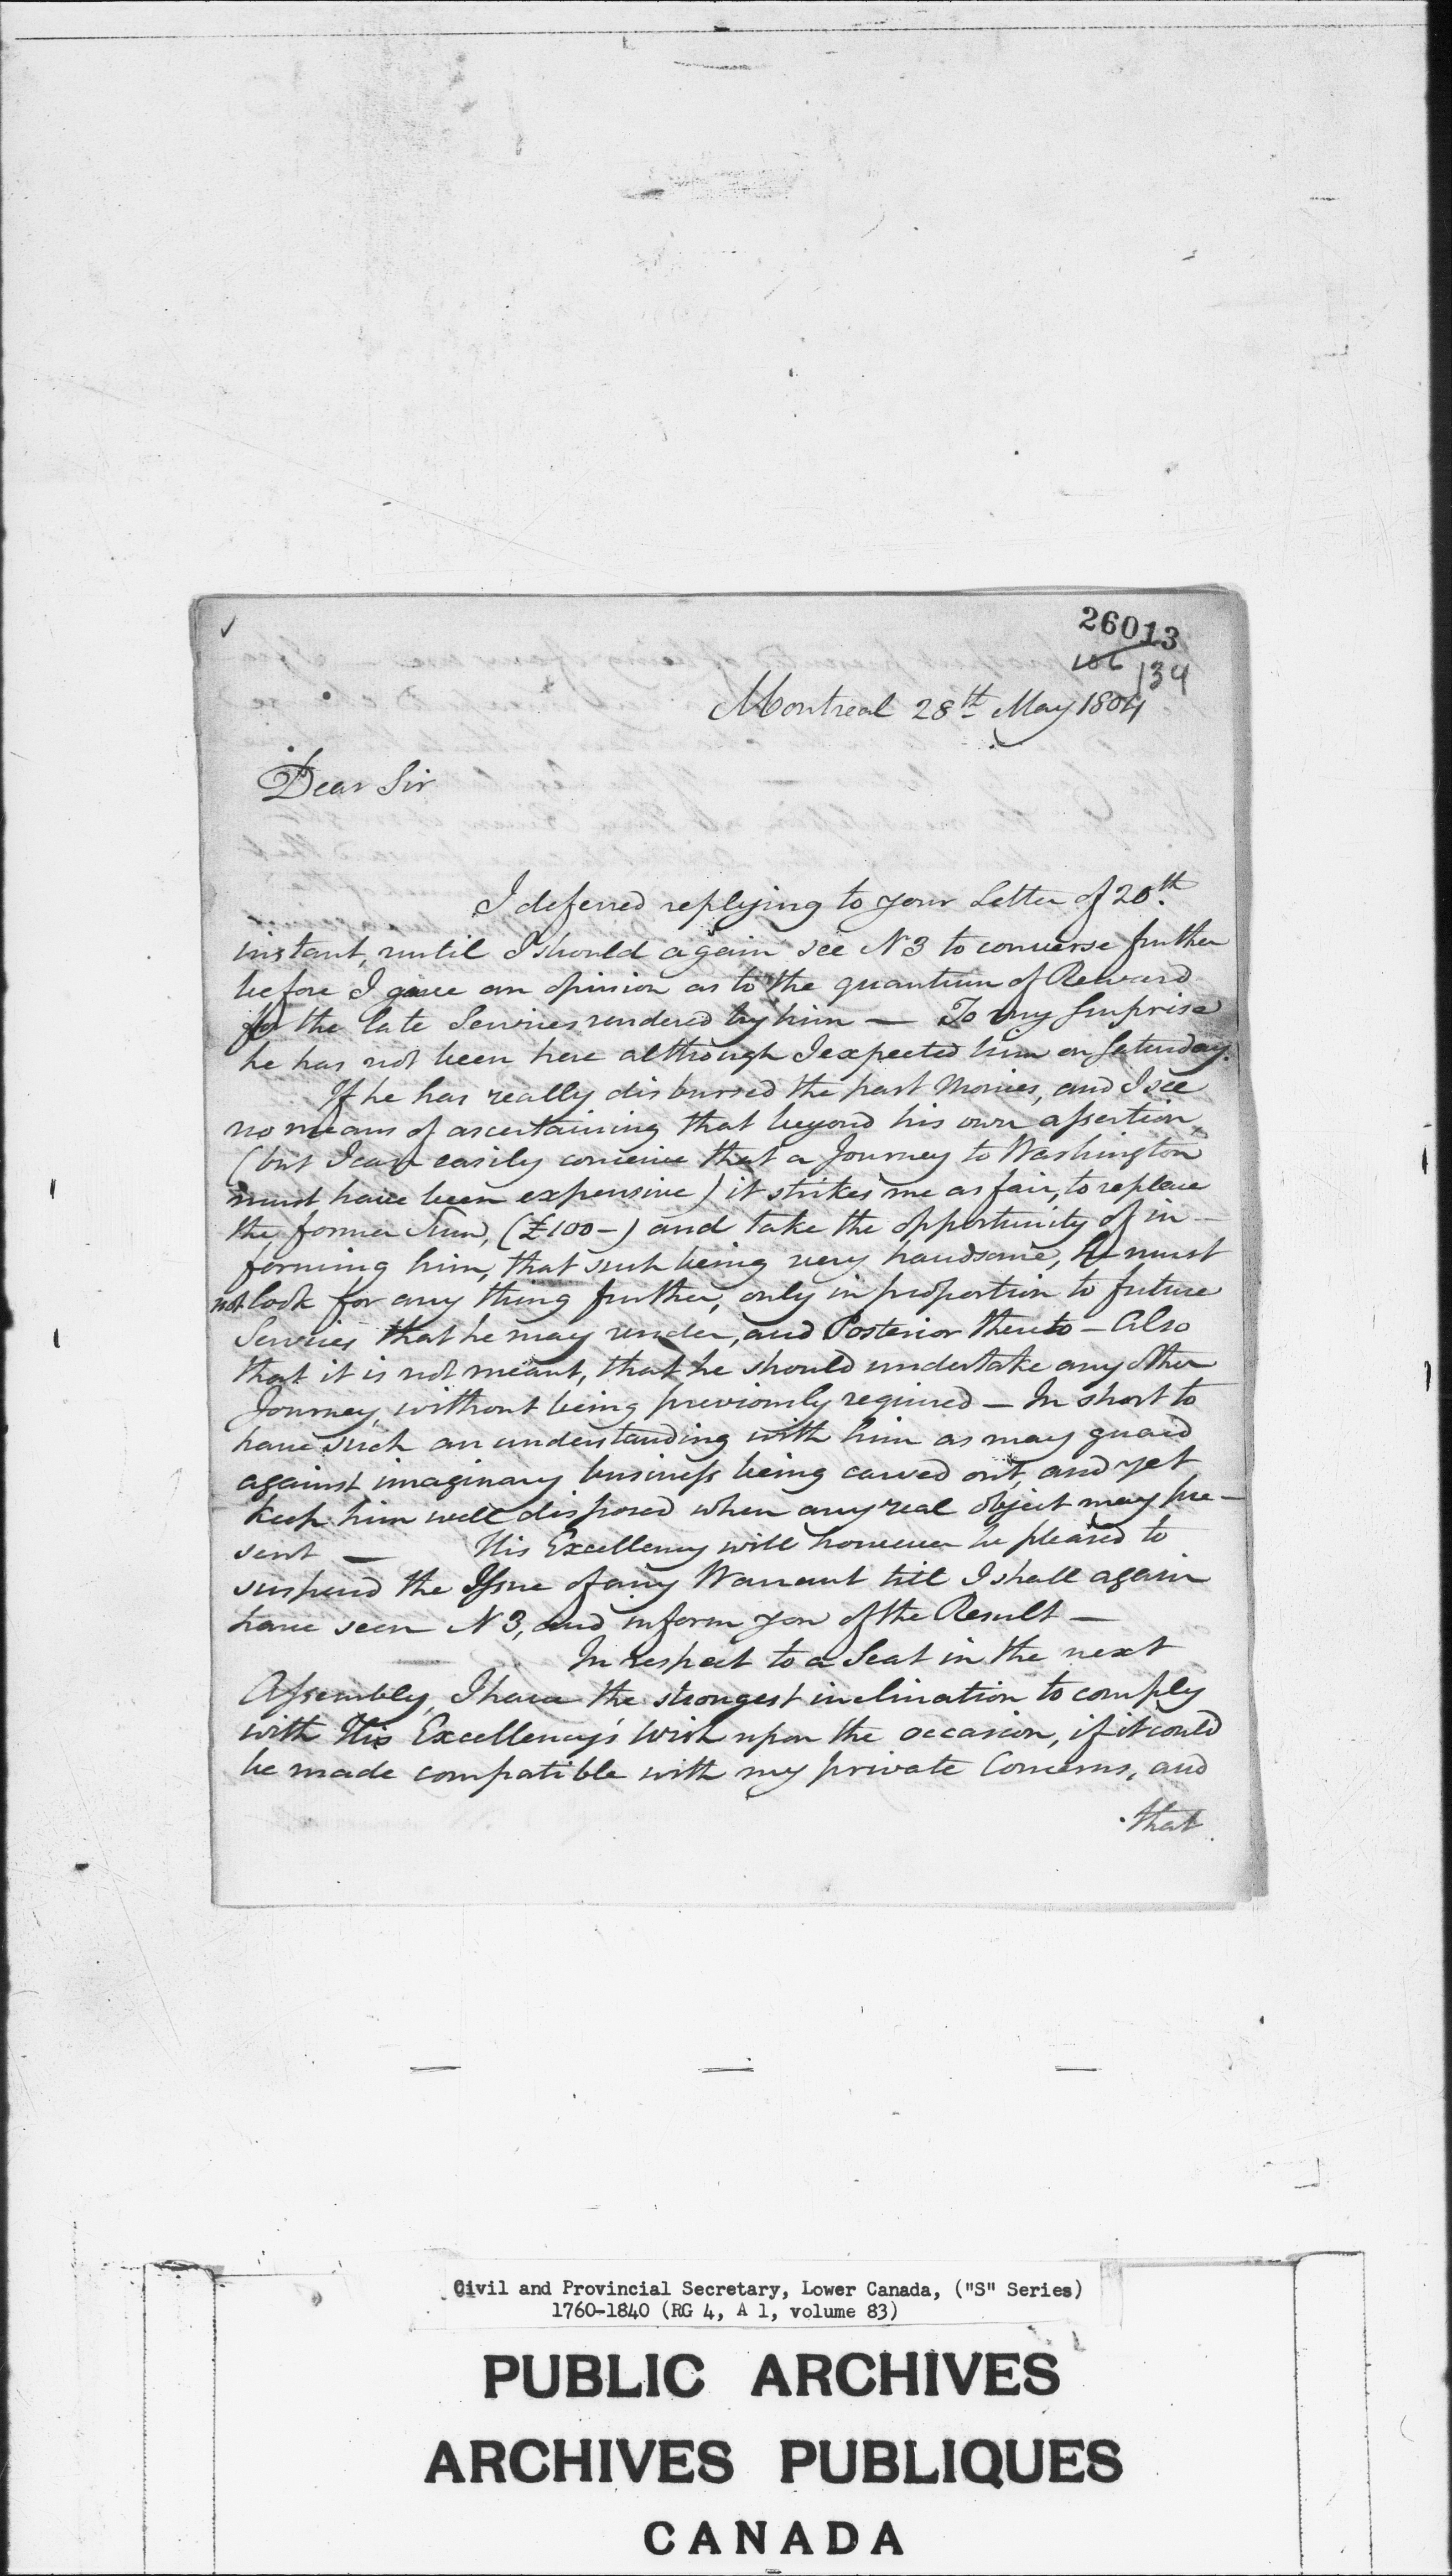 26013
106
134
Montreal 28th May 1804
Dear Sir
I deferred replying to your Letter of 20th
instant, until I should again see N 3 to converse further
before I gave an opinion as to the quantum of Reward
for the late Services rendered by him — To my Surprise
he has not been here although I expected him on Saturday.
If he has really disbursed the past Monies, and I see
no means of ascertaining that beyond his own assertion,
(but I can easily conceive that a Journey to Washington
must have been expensive) it strikes me as fair, to replace
the former Sum, (£100-) and take the opportunity of in-
forming him, that such being very handsome, he must
not look for any thing further, only in proportion to future
Services that he may render, and Posterior thereto — Also
that it is not meant, that he should undertake any other
Journey, without being previously required — In short to
have such an understanding with him as may guard
against imaginary business being carved out, and yet
keep him well disposed when any real object may pre-
sent — His Excellency will however be pleased to
suspend the Issue of any Warrant till I shall again
have seen N 3, and inform you of the Result —
In respect to a Seat in the next
Assembly, I have the strongest inclination to comply
with His Excellency's Wish upon the occasion, if it could
be made compatible with my private Concerns, and
that
Civil and Provincial Secretary, Lower Canada, ("S" Series)
1760-1840 (RG 4, A 1, volume 83)
PUBLIC ARCHIVES
ARCHIVES PUBLIQUES
CANADA